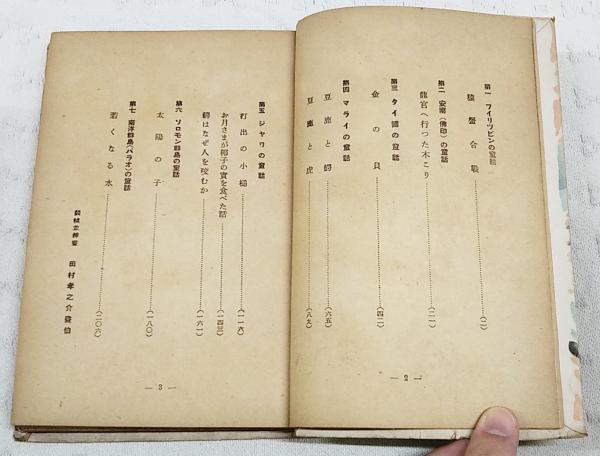 第一 フイリツピンの童話
猿螢合戰………(二)
第二 安南(佛印)の童話
龍宮へ行つた木こり………(二一)
第三 タイ國の童話
金の貝………(四二)
第四 マライの童話
豆鹿と鰐………(六五)
豆鹿と虎………(八九)
— 2 —
第五 ジヤワの童話
打出の小槌………(一一六)
お月さまが椰子の實を食べた話………(一四三)
鰐はなぜ人を咬むか………(一六一)
第六 ソロモン群島の童話
太陽の子………(一八〇)
第七 南洋群島(パラオ)の童話
若くなる水………(二〇六)
裝幀並挿畫 田村孝之介畫伯
— 3 —